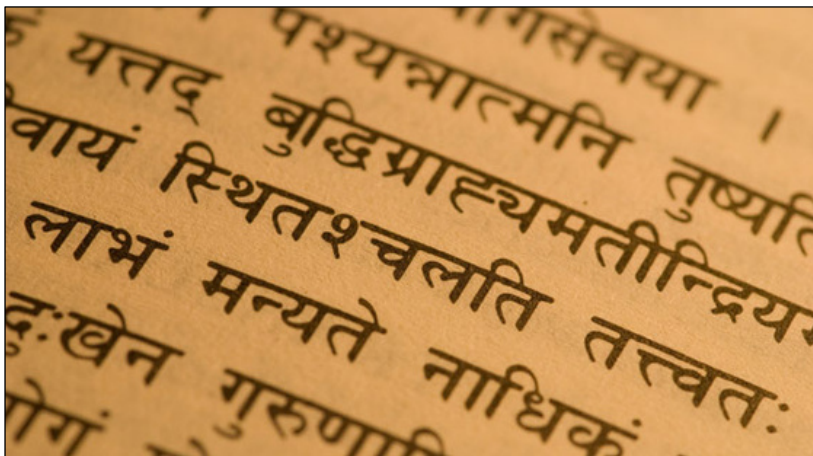 योगसेवया ।
पश्यन्नात्मनि तुष्यति
यत्तद् बुद्धिग्राह्यमतीन्द्रियम
स्थितश्चलति तत्त्वतः
लाभं मन्यते नाधिकं
दुःखेन गुरुणापि
योगं